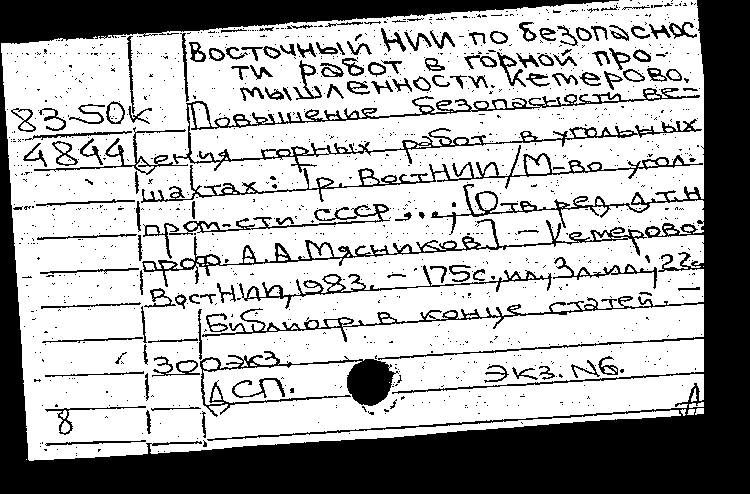 Восточный НИИ по безопаснос
ти работ в горной про-
мышленности. Кемерово.
83-50К Повышение безопасности ве-
4844 дения горных работ в угольных
шахтах: Тр. ВостНИИ/М-во угол.
пром-сти СССР...; [Отв. ред. д.т.н.
проф. А. А. Мясников]. - Кемерово:
ВостНИИ, 1983. - 175с., ил., 3л.ил.; 22с
Библиогр. в конце статей. -
300экз.
ДСП. Экз. N6.
8 Л